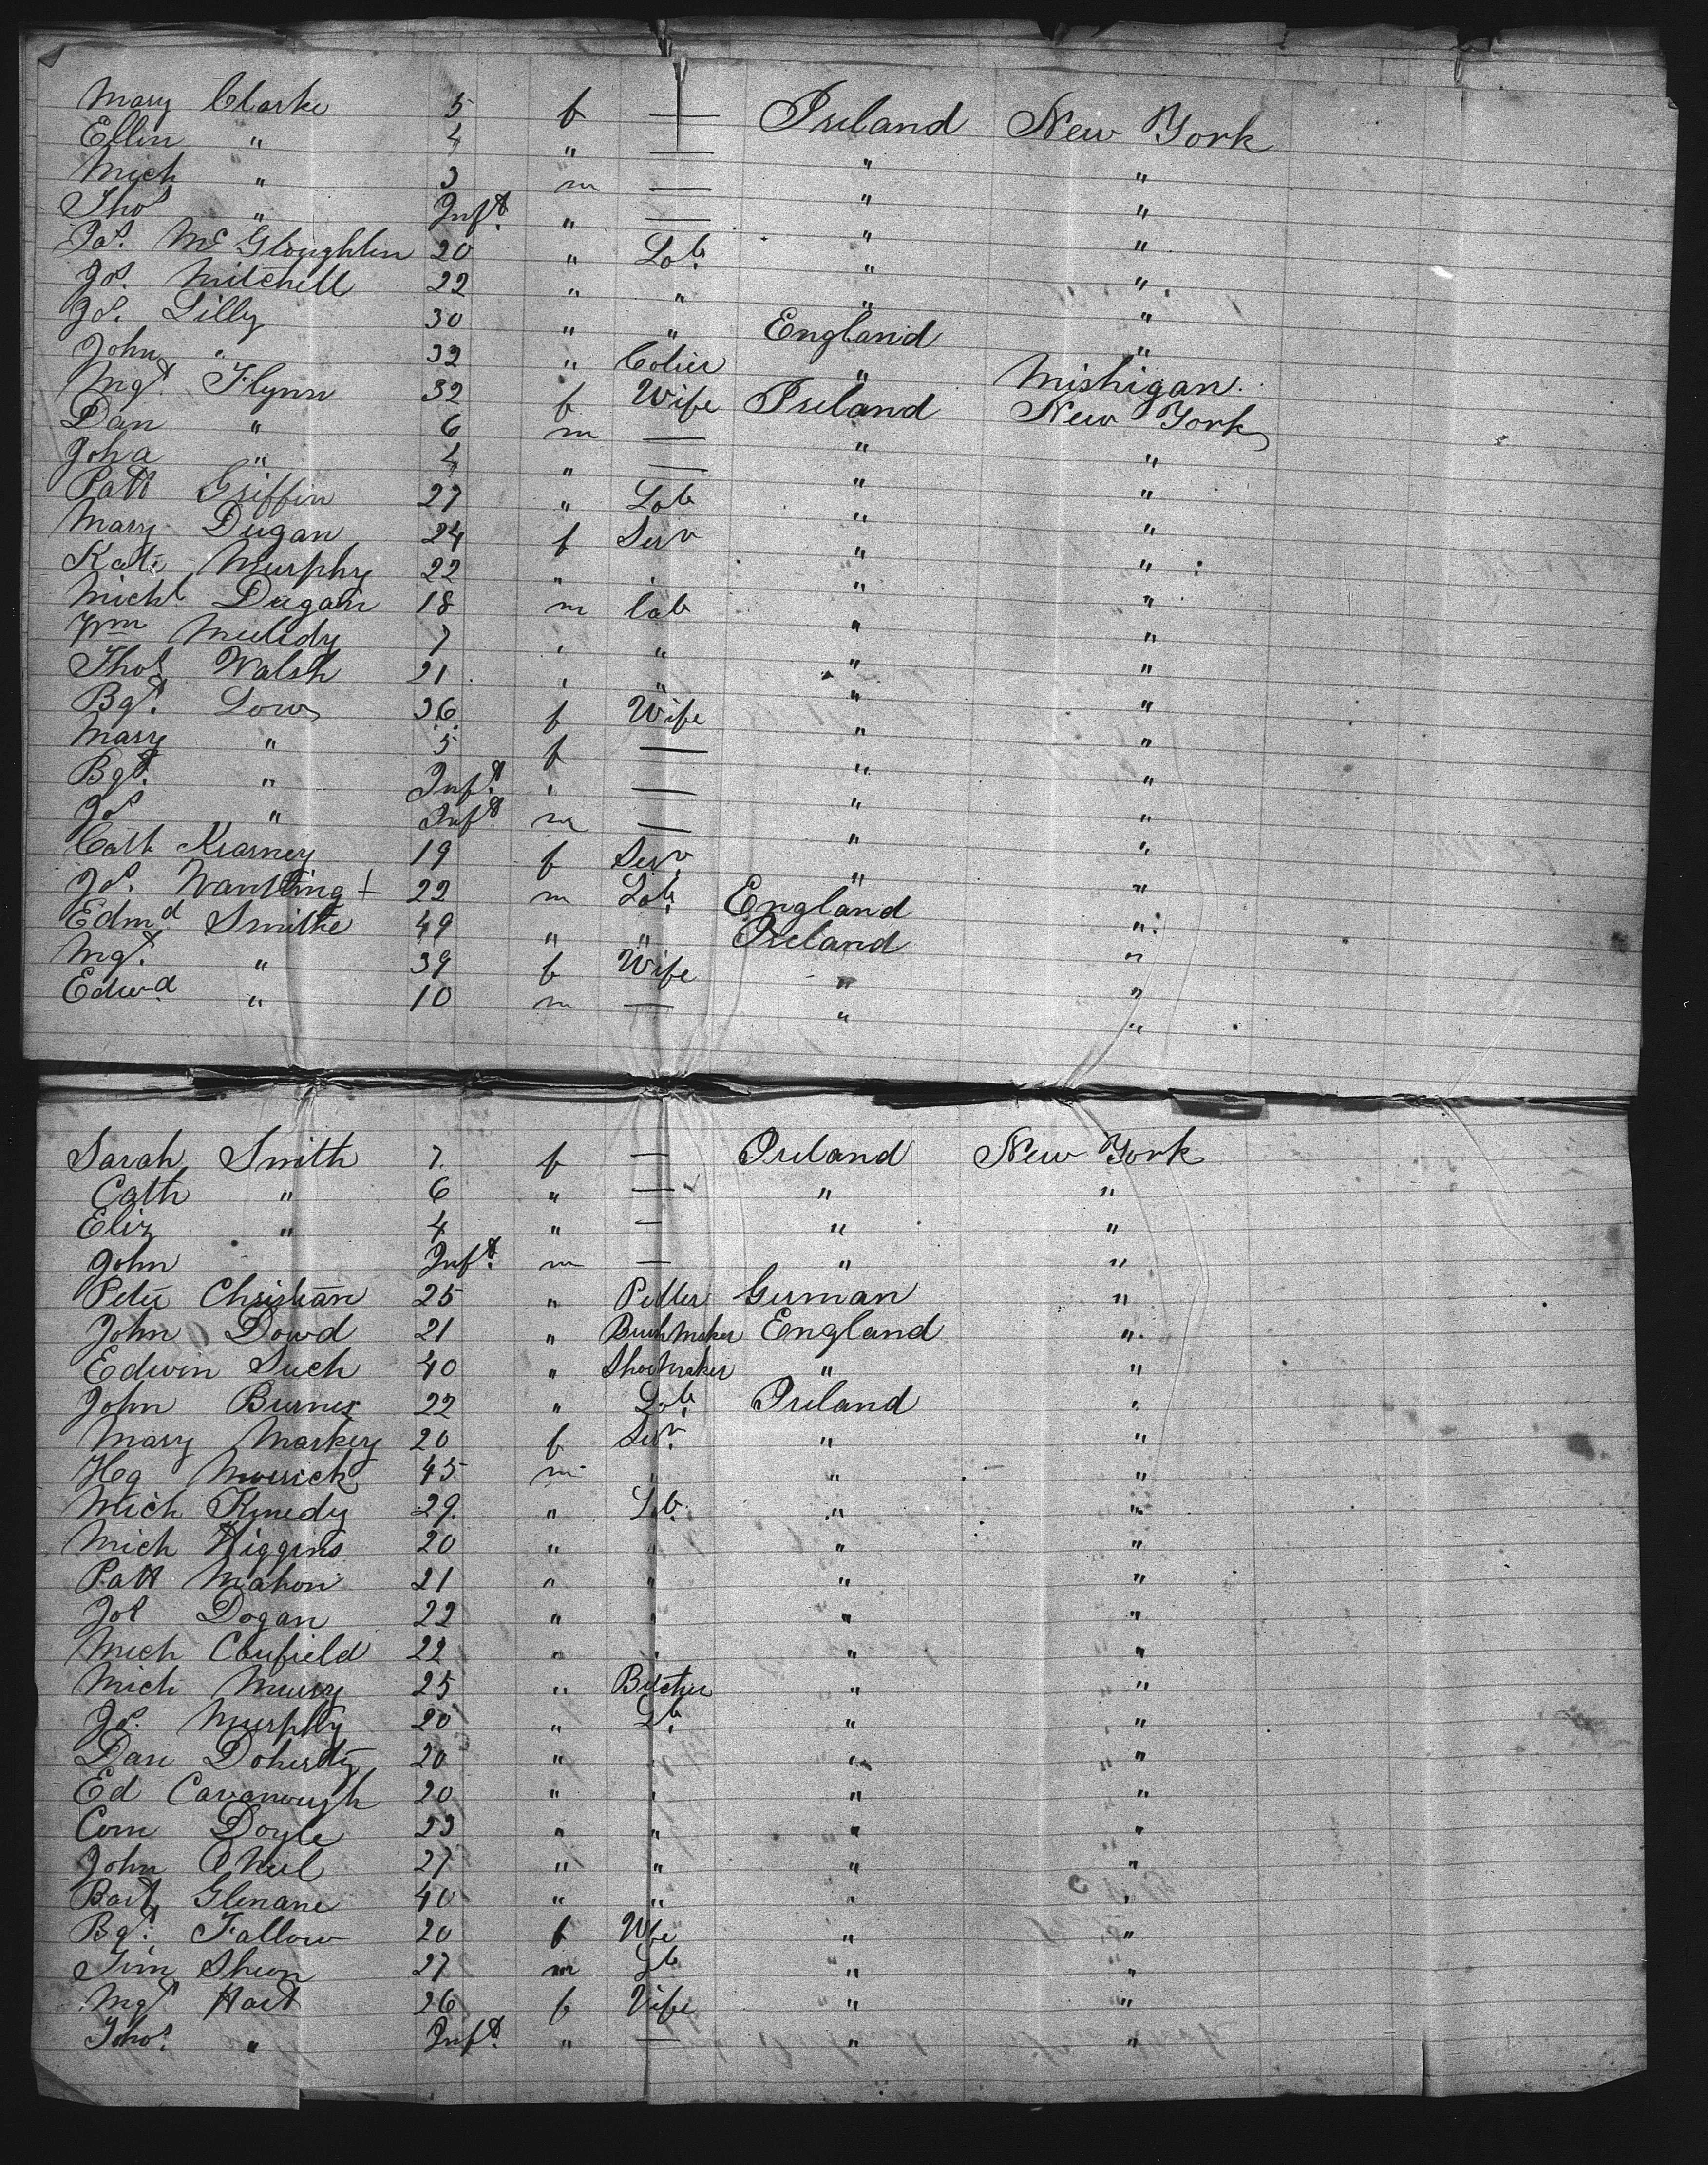 Mary Clarke 5 f — Ireland New York
Ellin " 4 " — " "
Mich " 3 m — " "
Thos " Inft. " — " "
Pat. McGloughlin 20 " Lab. " "
Jos. Mitchell 22 " " " "
Jos. Lilly 30 " " England "
John " 32 " Colier " Mishigan.
Mgt. Flynn 32 f Wife Ireland New York
Dan " 6 m — " "
Joh a " 4 " — " "
Patt Griffin 27 " Lab " "
Mary Dugan 24 f Serv " "
Kate Murphy 22 " " " "
Michl Dugan 18 m lab " "
Wm Mulidy 7 " " " "
Thos Walsh 21 " " " "
Bgt. Low 36 f Wife " "
Mary " 5 f — " "
Bgt. " Inft. " — " "
Jos " Inft m — " "
Cath Kearney 19 f Serv. " "
Jos. Wantling + 22 m Lab. England "
Edmd Smithe 49 " " Ireland "
Mgt. " 39 f Wife " "
Edwd. " 10 m — " "
Sarah Smith 7. f — Ireland New York
Cath " 6 " — " "
Eliz " 4 " — " "
John Inft. m — " "
Peter Christian 25 " Pedler German "
John Dowd 21 " England "
Edwin Such 40 " Shoemaker " "
John Burnes 22 " Lab. Ireland "
Mary Markey 20 f Serv. " "
Hg 45 m " " "
Mich Kenedy 29. " Lab. " "
Mich Higgins 20 " " " "
Patt Mahon 21 " " " "
Jos Dogan 22 " " " "
Mich Caufield 22 " " " "
Mich Murry 25 " Butcher " "
Jos. Murphy 20 " Lb. " "
Dan Doherty 20 " " " "
Ed Cavanough 20 " " " "
Corn Doyle 23 " " " "
John O Neil 27 " " " "
Bart Glenane 40 " " " "
Bgt. Fallow 20 f Wife " "
Tim Sheon 27 m Lb " "
Mgt Hart 26 f Wife " "
Thos. " Inft. " — " "